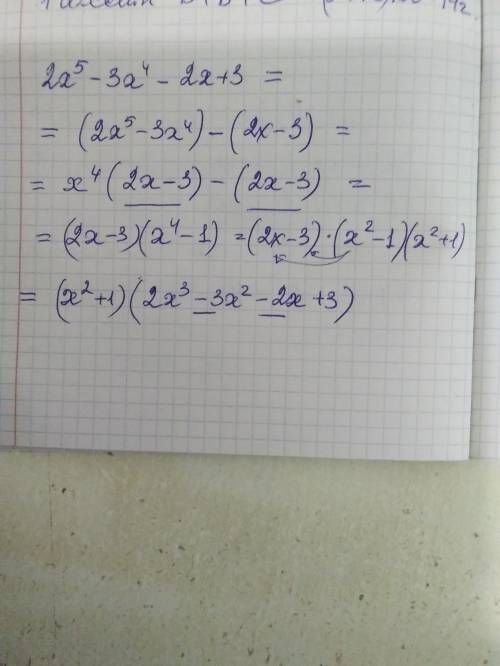 2x⁵ - 3x⁴ - 2x + 3 =
= (2x⁵ - 3x⁴) - (2x - 3) =
= x⁴ (2x - 3) - (2x - 3) =
= (2x - 3)(x⁴ - 1) = (2x - 3) · (x² - 1)(x² + 1)
= (x² + 1)(2x³ - 3x² - 2x + 3)